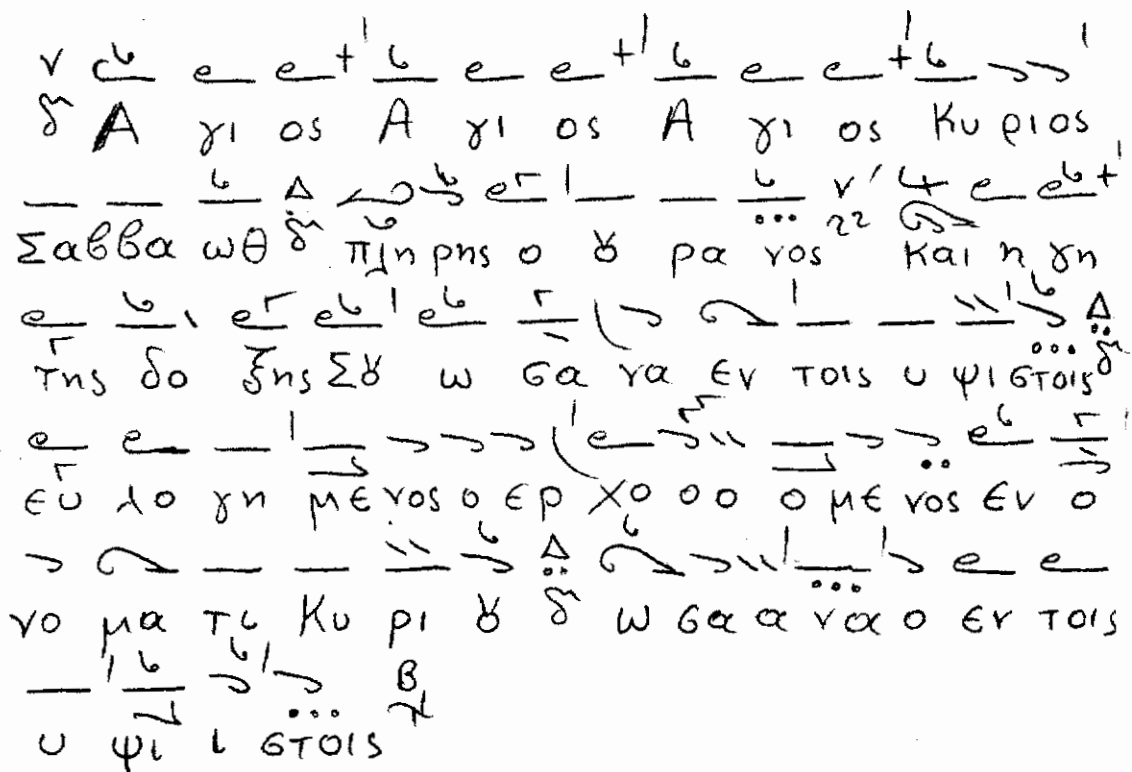 Α γι ος Α γι ος Α γι ος Κυ ριος
Σαββα ωθ πλη ρης ο ȣ ρα νος και η γη
της δο ξης Σȣ ω σα να εν τοις υ ψι στοις
ευ λο γη με νος ο ερ χο οο ο με νος εν ο
νο μα τι Κυ ρι ȣ ω σα α να ο εν τοις
υ ψι ι στοις